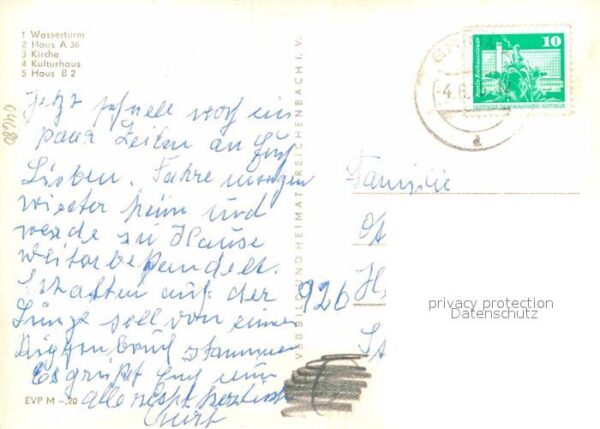 1 Wasserturm
2 Haus A 36
3 Kirche
4 Kulturhaus
5 Haus B 2
Jetzt schnell noch ein
paar Zeilen an Euch
Lieben. Fahre morgen
wieder heim und
werde zu Hause
weiterbehandelt.
Schatten auf der
Lunge soll von einem
Rippenbruch stammen
Es grüßt Euch nun
alle recht herzlich
Kurt
EVP M –,20
VEB BILD UND HEIMAT REICHENBACH I. V.
10
DEUTSCHE DEMOKRATISCHE REPUBLIK
-4.6.
a
Familie
926
privacy protection
Datenschutz